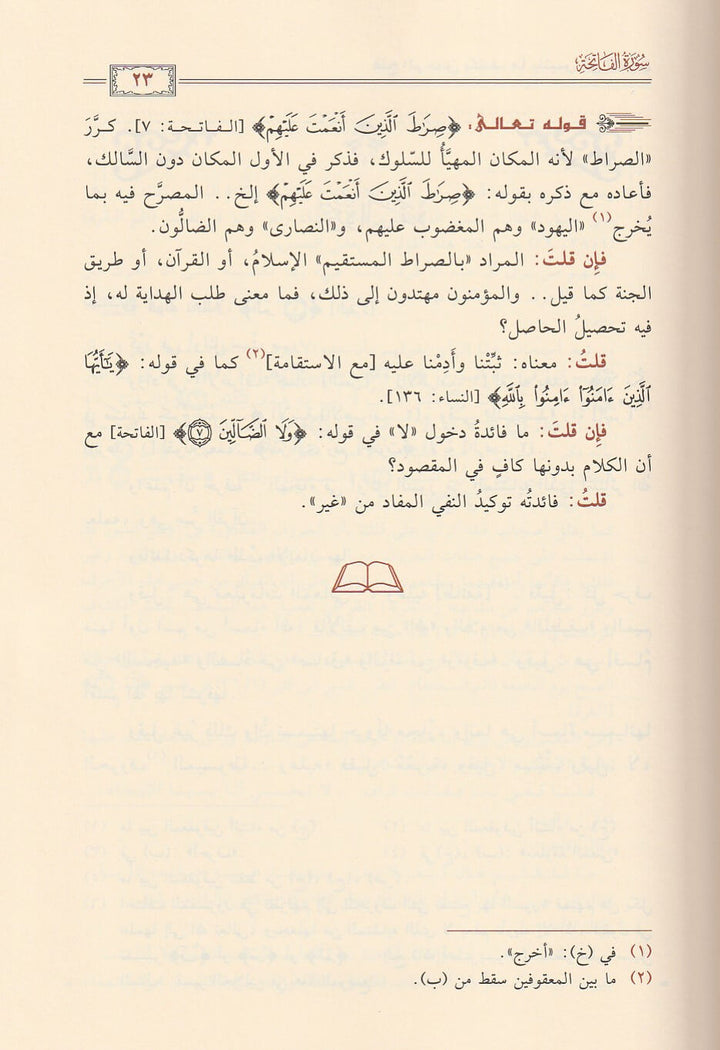 سُورَةُ الفَاتِحَةِ
٢٣
قوله تعالىٰ: ﴿صِرَٰطَ ٱلَّذِينَ أَنْعَمْتَ عَلَيْهِمْ﴾ [الفاتحة: ٧]. كرَّرَ
«الصراط» لأنه المكان المهيَّأُ للسّلوك، فذكر في الأول المكان دون السَّالك،
فأعاده مع ذكره بقوله: ﴿صِرَٰطَ ٱلَّذِينَ أَنْعَمْتَ عَلَيْهِمْ﴾ إلخ.. المصرَّح فيه بما
يُخرج(١) «اليهود» وهم المغضوب عليهم، و«النصارى» وهم الضالُّون.
فإن قلتَ: المراد «بالصراط المستقيم» الإسلامُ، أو القرآن، أو طريق
الجنة كما قيل.. والمؤمنون مهتدون إلى ذلك، فما معنى طلب الهداية له، إذ
فيه تحصيلُ الحاصل؟
قلتُ: معناه: ثبِّتْنا وأَدِمْنا عليه [مع الاستقامة](٢) كما في قوله: ﴿يَٰٓأَيُّهَا
ٱلَّذِينَ ءَامَنُوٓا۟ ءَامِنُوا۟ بِٱللَّهِ﴾ [النساء: ١٣٦].
فإن قلتَ: ما فائدةُ دخول «لا» في قوله: ﴿وَلَا ٱلضَّآلِّينَ ٧﴾ [الفاتحة] مع
أن الكلام بدونها كافٍ في المقصود؟
قلتُ: فائدتُه توكيدُ النفي المفاد من «غير».
(١) في (خ): «أخرج».
(٢) ما بين المعقوفين سقط من (ب).